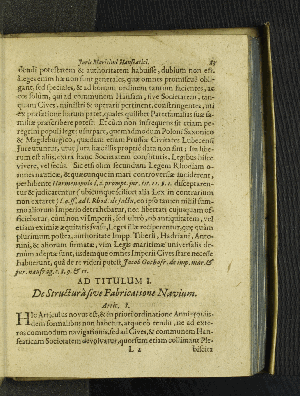 Juris Maritimi Hanseatici. 83
dendi potestatem & authoritatem habuisse, dubium non est.
Leges enim hæ non sunt generales, quæ omnes promiscuè obli-
gant, sed speciales, & ad bonum ordinem tantum facientes, ac
eos solum, qui ad communem Hansam, sive Societatem, tan-
quam Cives, ministri & operarii pertinent, constringentes, uti
ex præfatione harum patet, quales quilibet Paterfamilias suæ fa-
miliæ præscribere potest. Et non infrequens sit etiam pe-
regrini populi leges usurpare, quemadmodum Poloni Saxonico
& Magdeburgico, quædam etiam Prussiæ Civitates Lubecensi
Jure utuntur,
rum est aliis, extra hanc Societatem constitutis, Legibus hisce
vivere, vel secus. Sic etsi olim secundum Legem Rhodiam o-
mnes nauticæ, & quæcunque in mari controversiæ inciderent,
perhibente Harmenopulo l. 2. promtu. jur. tit. 11. §. 1. disceptaren-
tur & judicarentur (ubicunque scilicet alia Lex in contrarium
non extaret; l. 9. ff. ad l. Rhod. de jactu, eo ipso tamen nihil sum-
mo aliorum Imperio derehebatur, nec libertati cujusquam of-
ficiebatur, cùm non vi Imperii, sed ultrò, ob antiquitatem, vel
etiam eximiæ æquitatis suasu, Leges illæ reciperentur, quæ quam
plurimum postea, authoritate Impp. Tiberii, Hadriani, Anto-
nini, & aliorum firmatæ, vim Legis maritimæ universalis de-
mum adeptæ sunt, iisdemque omnes Imperii Cives stare necesse
habuerunt, quâ de re videri potest Jacob Gothofr. de imp. mar. &
jur. naufrag. c. 8. 9. & 11.
AD TITULUM I.
De Structurâ sive Fabricatione Navium.
Artic. 1.
HIc Articulus novus est, & in priori ordinatione
idem formalibus non habetur, atque eò tendit, ne ad exte-
ros commodum navigationis, sed ad Cives, & communem Han-
seaticam Societatem devolvatur, quorsum etiam collimant Ple-
L 2 biscita